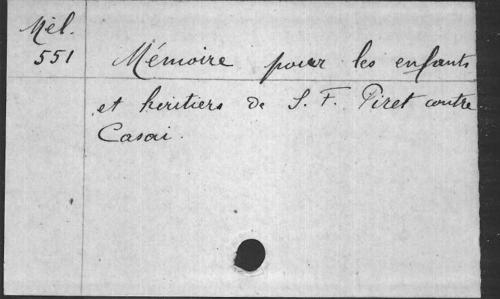 Mél.
551
Mémoire pour les enfants
et heritiers de S. F. Piret contre
Casai.